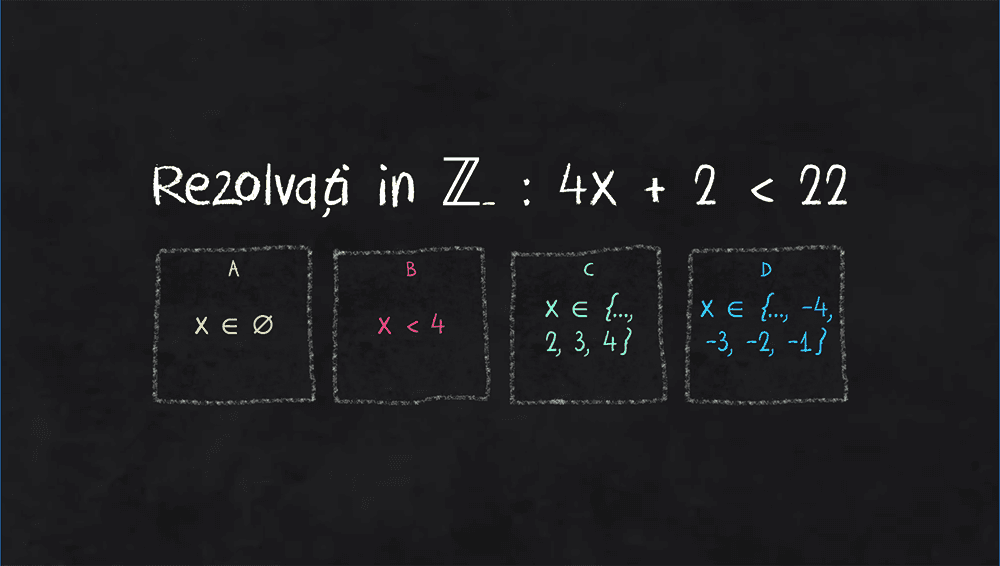 Rezolvați in ℤ_ : 4X + 2 < 22
A
X ∈ ∅
B
X < 4
C
X ∈ {...,
2, 3, 4}
D
X ∈ {..., -4,
-3, -2, -1}